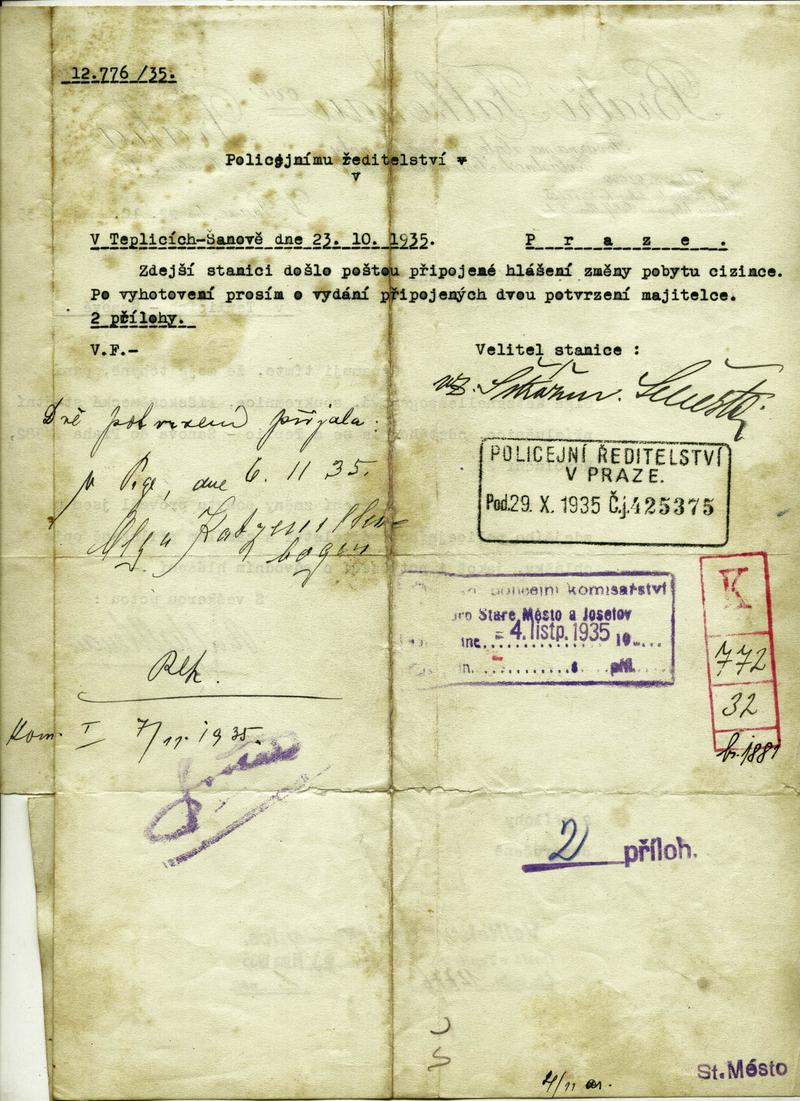 12.776/35.
Policejnímu ředitelství v
v
V Teplicích-Šanově dne 23. 10. 1935. P r a z e .
Zdejší stanici došlo poštou připojené hlášení změny pobytu cizince.
Po vyhotovení prosím o vydání připojených dvou potvrzení majitelce.
2 přílohy.
V.F.- Velitel stanice :
Dvě potvrzení přijala:
v Pze, dne 6. 11 35.
Olga Katzenellen-
bogen
POLICEJNÍ ŘEDITELSTVÍ
V PRAZE.
Pod. 29. X. 1935 Č.j. 425375
policejní komisařství
pro Staré Město a Josefov
- 4. listp. 1935 19
příl.
K
772
32
Kom. I 7/11. 1935.
2 příloh.
4/11
St. Město